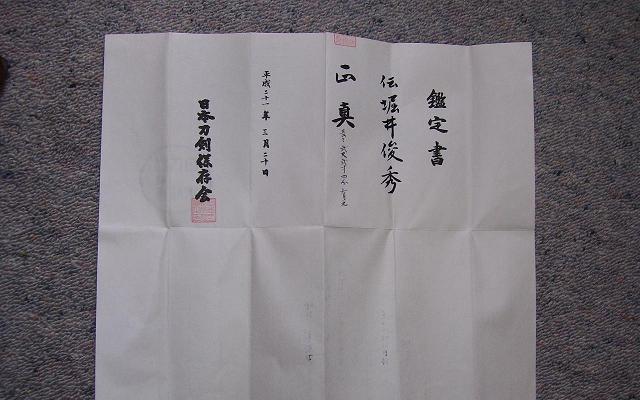 鑑定書
伝堀井俊秀
正真
平成二十一年三月二十日
日本刀剣保存会